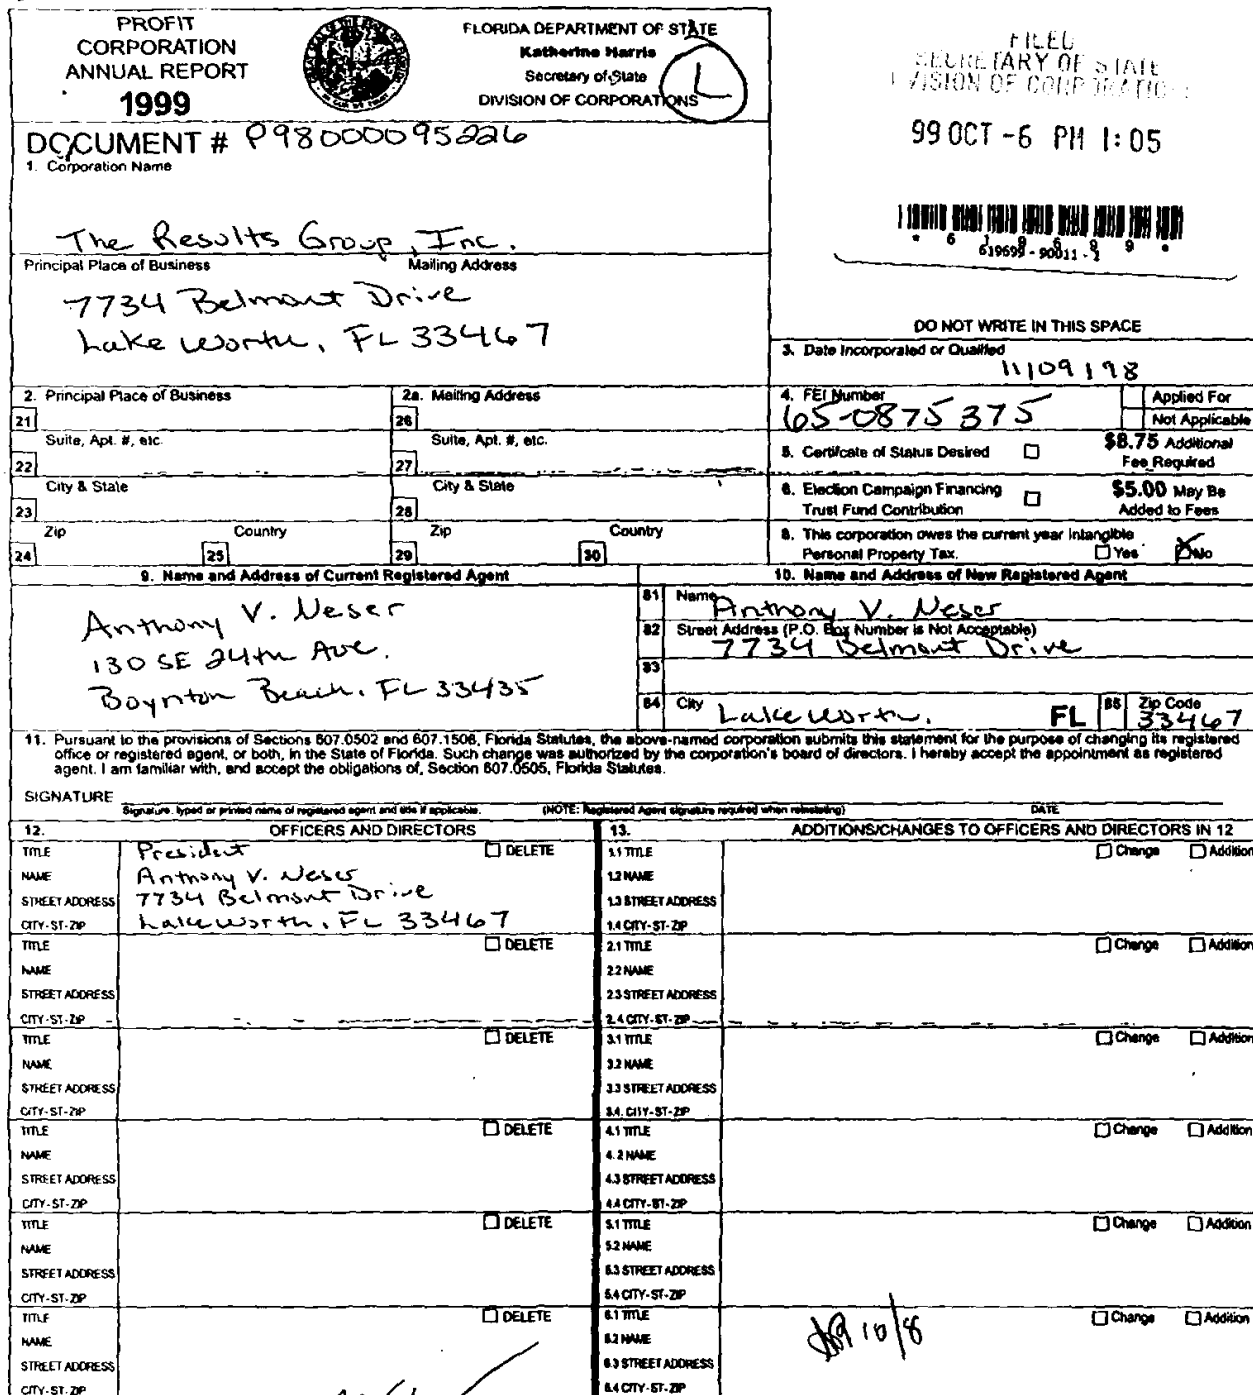 PROFIT
CORPORATION
ANNUAL REPORT
1999
FLORIDA DEPARTMENT OF STATE
Katherine Harris
Secretary of State
DIVISION OF CORPORATIONS
L
FILED
SECRETARY OF STATE
DIVISION OF CORPORATIONS
99 OCT -6 PM 1:05
DOCUMENT # P98000095226
1. Corporation Name
The Results Group, Inc.
* 6 1 9 6 9 9 *
619699 - 90011 - 1
Principal Place of Business Mailing Address
7734 Belmont Drive
Lake Worth, FL 33467
DO NOT WRITE IN THIS SPACE
3. Date Incorporated or Qualified
11/09/98
2. Principal Place of Business
21
Suite, Apt. #, etc.
22
City & State
23
Zip Country
24 25
2a. Mailing Address
26
Suite, Apt. #, etc.
27
City & State
28
Zip Country
29 30
4. FEI Number
65-0875375
Applied For
Not Applicable
5. Certifcate of Status Desired $8.75 Additional
Fee Required
6. Election Campaign Financing $5.00 May Be
Trust Fund Contribution Added to Fees
8. This corporation owes the current year Intangible
Personal Property Tax. Yes No
9. Name and Address of Current Registered Agent
Anthony V. Neser
130 SE 24th Ave.
Boynton Beach, FL 33435
10. Name and Address of New Registered Agent
81 Name Anthony V. Neser
82 Street Address (P.O. Box Number is Not Acceptable)
7734 Belmont Drive
83
84 City Lake Worth, FL 85 Zip Code
33467
11. Pursuant to the provisions of Sections 607.0502 and 607.1508, Florida Statutes, the above-named corporation submits this statement for the purpose of changing its registered
office or registered agent, or both, in the State of Florida. Such change was authorized by the corporation's board of directors. I hereby accept the appointment as registered
agent. I am familiar with, and accept the obligations of, Section 607.0505, Florida Statutes.
SIGNATURE
Signature, typed or printed name of registered agent and title if applicable. (NOTE: Registered Agent signature required when reinstating) DATE
12. OFFICERS AND DIRECTORS
13. ADDITIONS/CHANGES TO OFFICERS AND DIRECTORS IN 12
TITLE President DELETE
NAME Anthony V. Neser
STREET ADDRESS 7734 Belmont Drive
CITY-ST-ZIP Lake Worth, FL 33467
1.1 TITLE Change Addition
1.2 NAME
1.3 STREET ADDRESS
1.4 CITY-ST-ZIP
TITLE DELETE
NAME
STREET ADDRESS
CITY-ST-ZIP
2.1 TITLE Change Addition
2.2 NAME
2.3 STREET ADDRESS
2.4 CITY-ST-ZIP
TITLE DELETE
NAME
STREET ADDRESS
CITY-ST-ZIP
3.1 TITLE Change Addition
3.2 NAME
3.3 STREET ADDRESS
3.4. CITY-ST-ZIP
TITLE DELETE
NAME
STREET ADDRESS
CITY-ST-ZIP
4.1 TITLE Change Addition
4.2 NAME
4.3 STREET ADDRESS
4.4 CITY-ST-ZIP
TITLE DELETE
NAME
STREET ADDRESS
CITY-ST-ZIP
5.1 TITLE Change Addition
5.2 NAME
5.3 STREET ADDRESS
5.4 CITY-ST-ZIP
TITLE DELETE
NAME
STREET ADDRESS
CITY-ST-ZIP
6.1 TITLE Change Addition
6.2 NAME
6.3 STREET ADDRESS
6.4 CITY-ST-ZIP
10/8